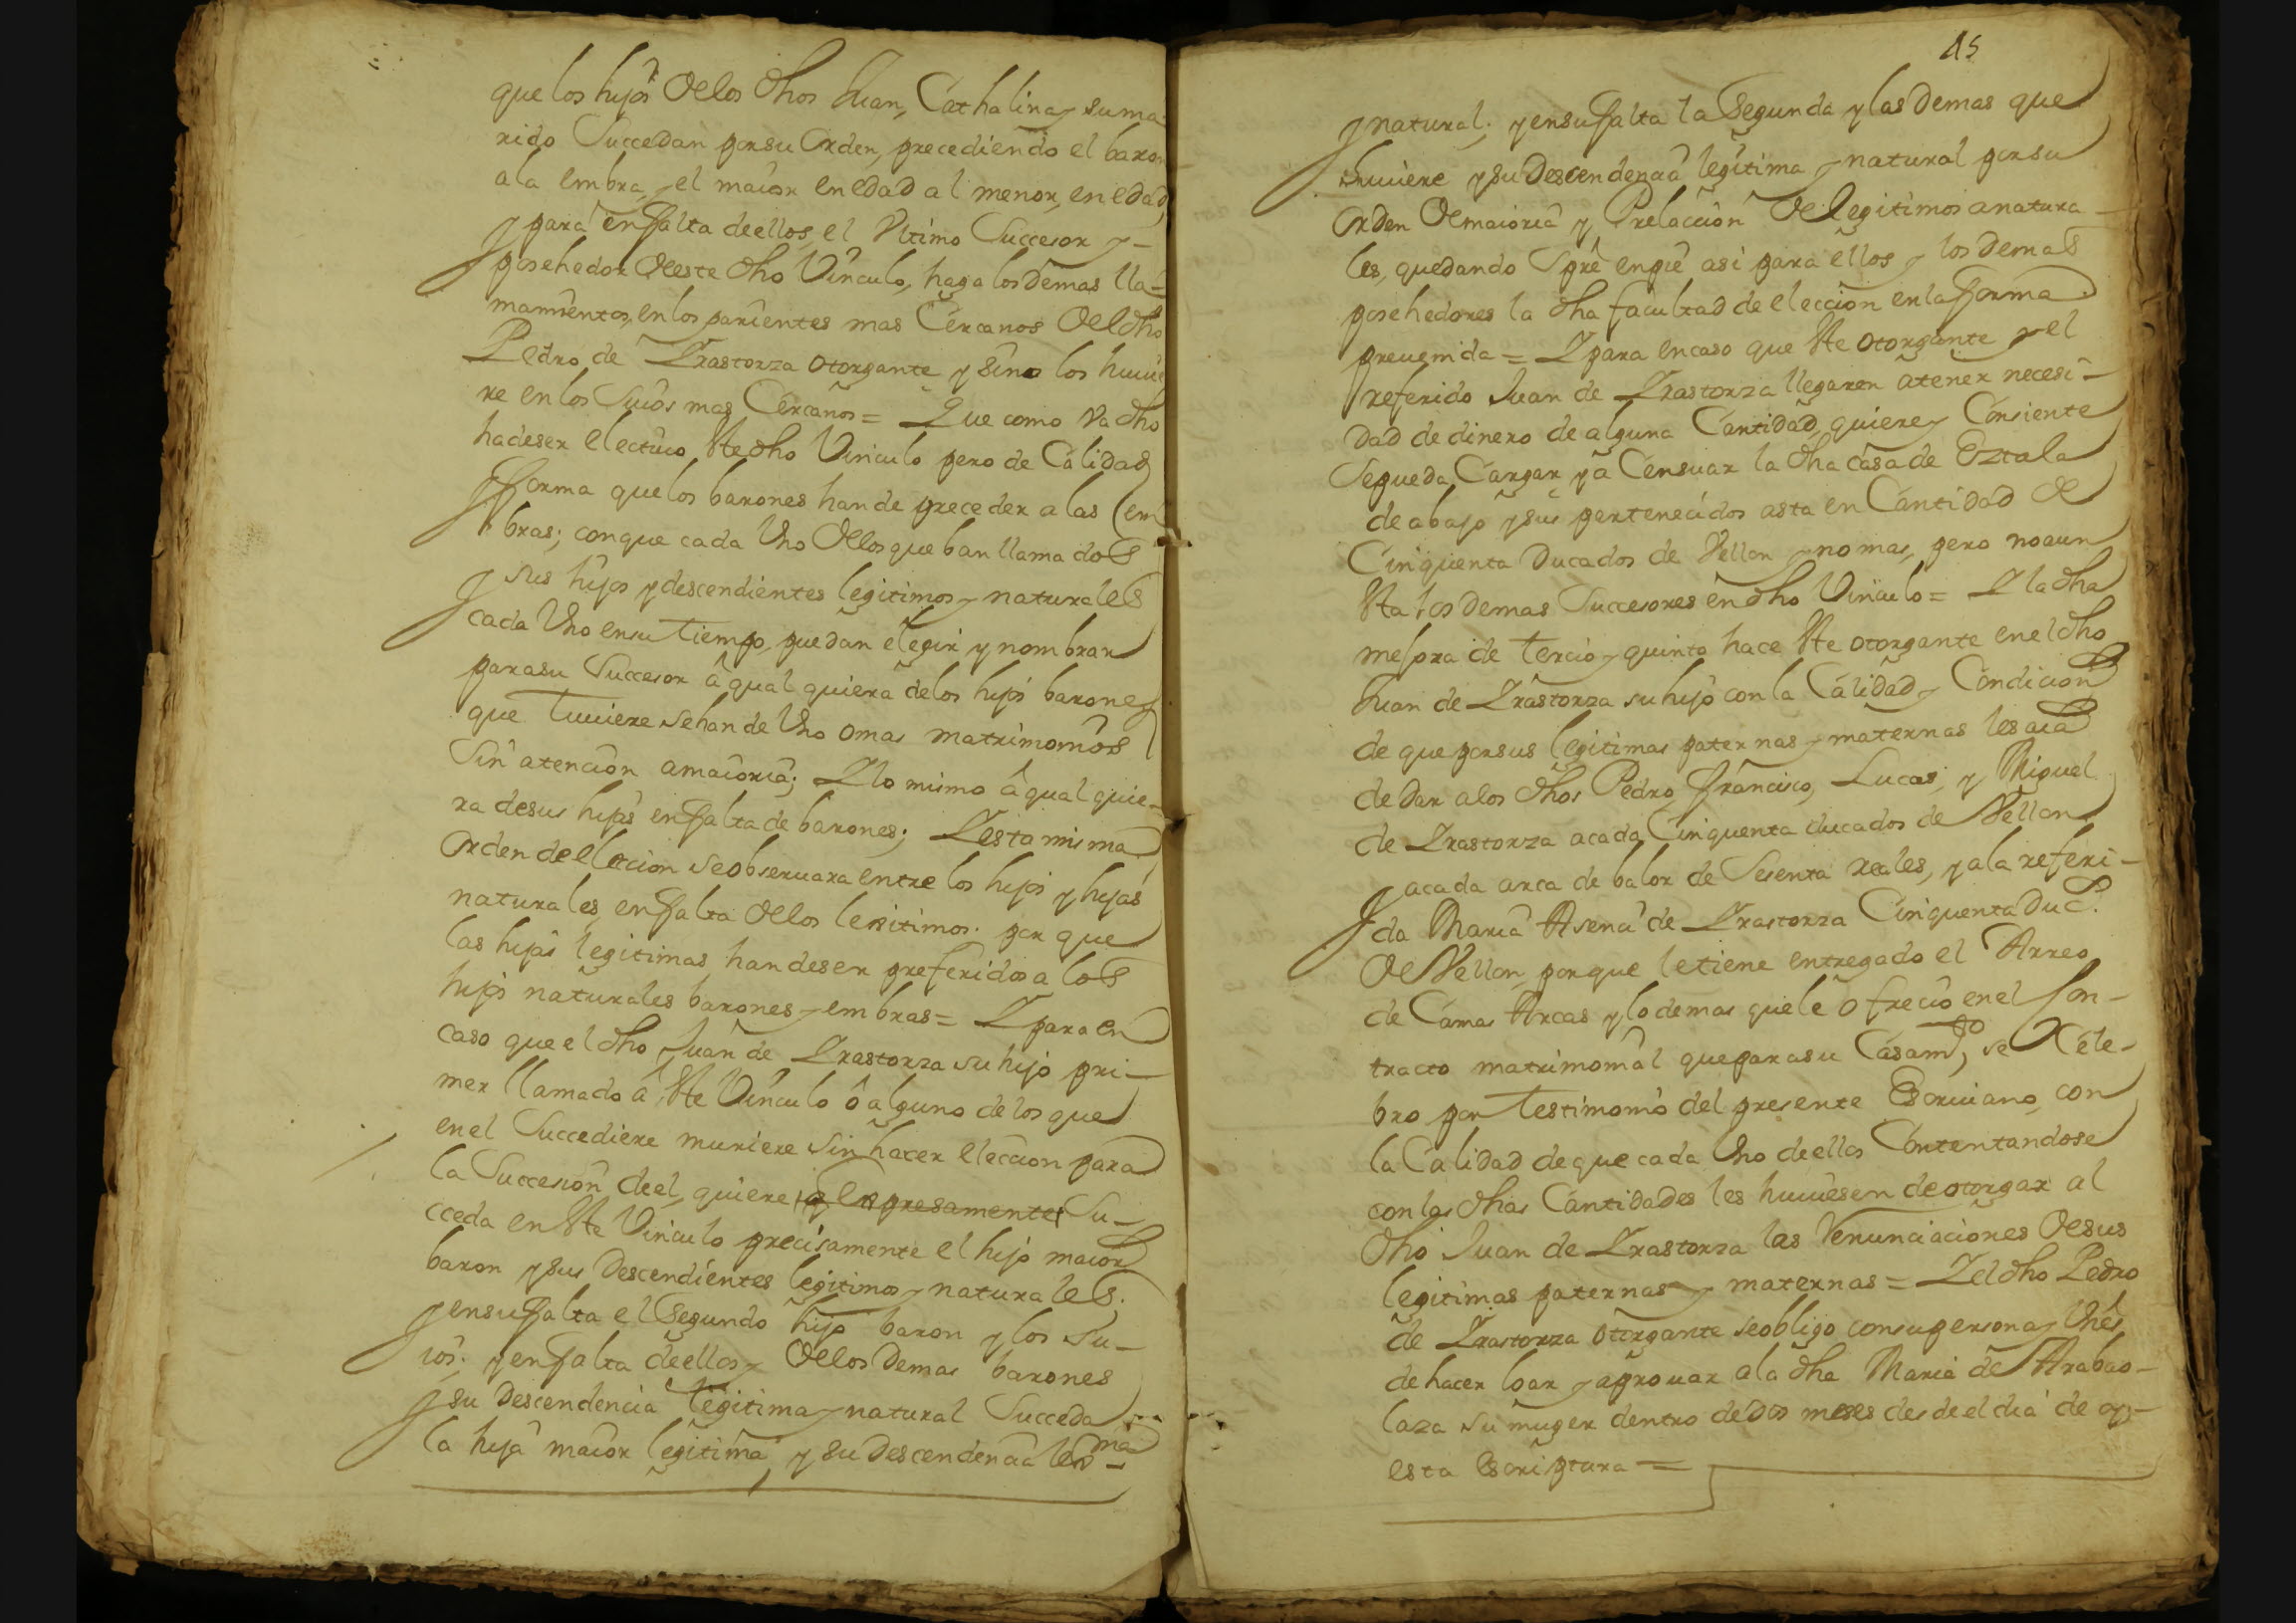 que los hijos de los dhos Juan, Cathalina y su ma-
rido Succedan por su orden, precediendo el baron
a la embra, y el maior en edad al menor, en edad,
y para en falta de ellos, el Vltimo Succesor y
posehedor de este dho Vinculo, haga los demas lla-
mamientos, en los parientes mas Cercanos de el dho
Pedro de Yrastorza otorgante y sino los huuie
re en los Suios mas Cercanos = Que como va dho
ha de ser electiuo este dho Vinculo pero de Calidad
y forma que los barones han de preceder a las em
bras; con que cada Vno de los que ban llamados
y sus hijos y descendientes legitimos y naturales
cada Vno en su tiempo, puedan elegir y nombrar
para su Succesor a qual quiera de los hijos barones
que tuuiere se han de Vno o mas matrimonios
Sin atencion a maioria; Y lo mismo a qual quie-
ra de sus hijas en falta de barones; Y esta misma
orden de eleccion se obseruara entre los hijos y hijas
naturales, en falta de los legitimos. por que
las hijas legitimas, han de ser preferidos a los
hijos naturales barones y embras = Y para en
caso que el dho Juan de Yrastorza su hijo pri-
mer llamado a este Vinculo o alguno de los que
en el Succediere muriere sin hacer eleccion para
la Succesion de el, quiere q expresamente Su-
cceda en este Vinculo precisamente el hijo maior
baron y sus Descendientes legitimos y naturales.
y en su falta el Segundo hijo baron y los Su-
ios. y en falta de ellos y de los Demas barones
y su Descendencia legitima y natural Succeda
la hija maior legitima, y su Descendencia legma
15
y natural; y en su falta la Segunda y las Demas que
huuiere y su Descendencia legitima y natural por su
orden de maioria y Prelacion de legitimos a natura-
les, quedando Spre en pie asi para ellos y los demas
posehedores la dha facultad de eleccion en la forma
preuenida = Y para en caso que este otorgante y el
referido Juan de Yrastorza llegaren a tener necesi-
dad de dinero de alguna Cantidad, quiere y Consiente
Se pueda Cargar y a Censuar la dha casa de Eztala
de abajo y sus pertenecidos asta en Cantidad de
Cinquenta Ducados de Vellon y no mas, pero no aun
sta los demas Succesores en dho Vinculo = Y la dha
mejora de tercio y quinto hace este otorgante en el dho
Juan de Yrastorza su hijo con la Calidad y Condicion
de que por sus legitimas paternas y maternas les aia
de dar a los dhos Pedro, Francisco, Lucas, y Miguel
de Yrastorza a cada Cinquenta ducados de Vellon
y a cada arca de balor de Sesenta reales, y a la referi-
da Maria Asencia de Yrastorza Cinquenta Duc.
de Vellon, porque le tiene entregado el Arreo
de Camas Arcas y lo demas que le ofrecio en el Con-
tracto matrimonial que para su Casamto, se Cele-
bro por testimonio del presente Escriuano, con
la Calidad de que cada Vno de ellos Contentandose
con las dhas Cantidades les huuiesen de otorgar al
dho Juan de Yrastorza las Renunciaciones de sus
legitimas paternas y maternas = Y el dho Pedro
de Yrastorza otorgante se obligo con su persona y Vnes
de hacer loar y aprouar a la dha Maria de Arabao-
laza su muger dentro de dos meses desde el dia de oy
esta Escriptura =